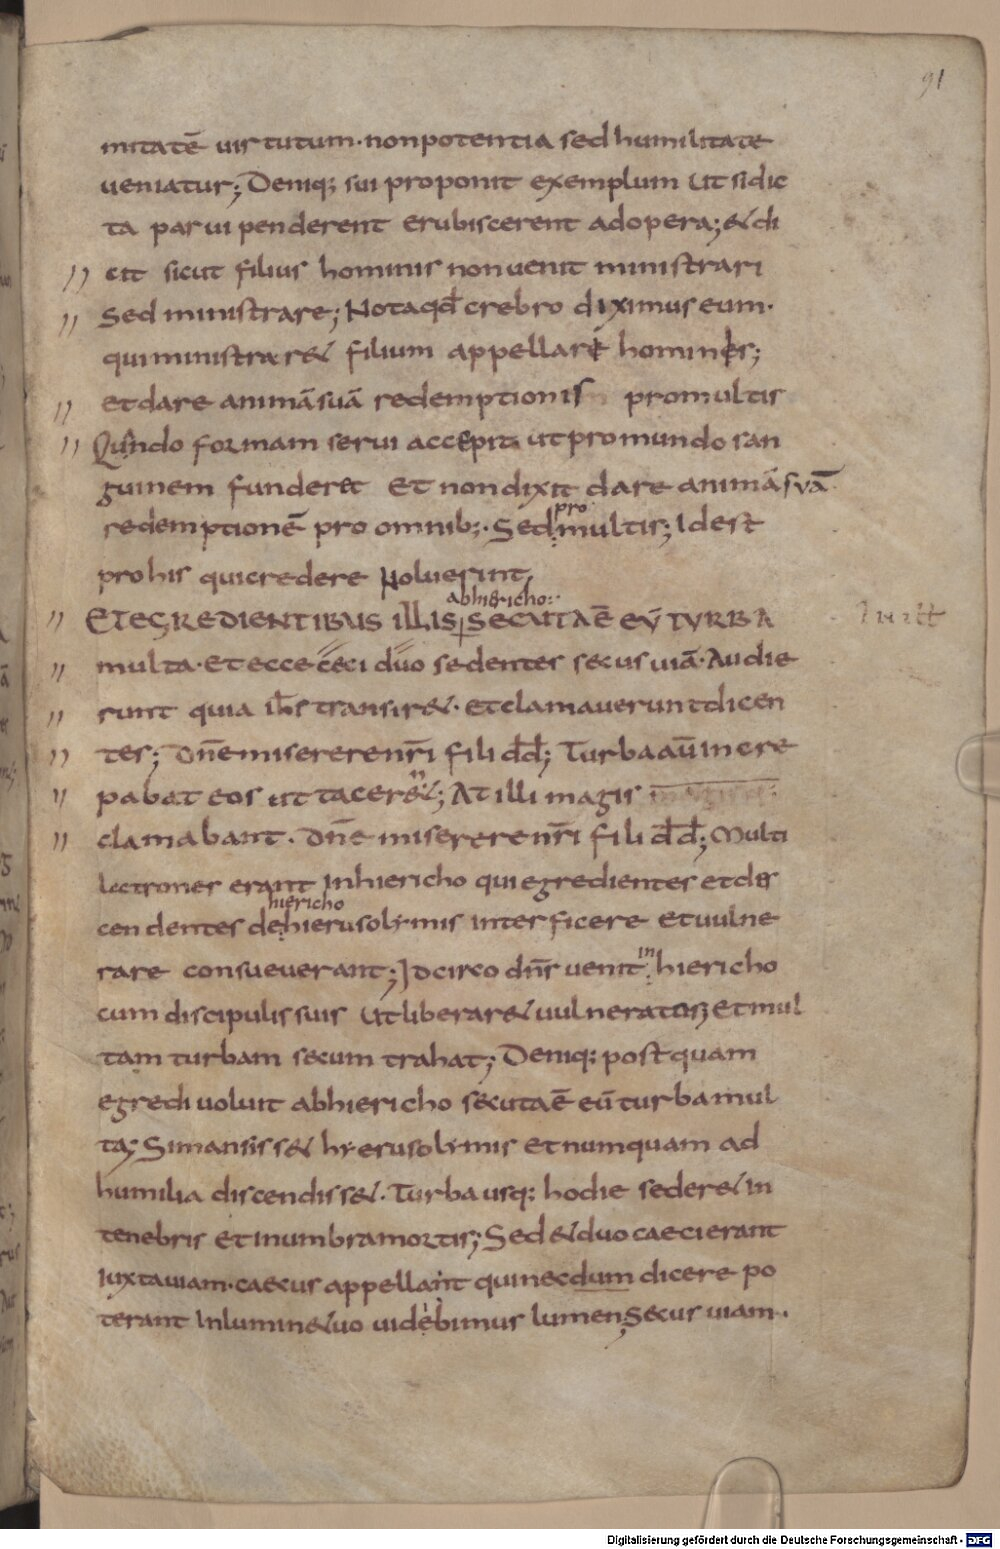 91
mitatē uirtutum· non potentia sed humilitate
ueniatur; Deniq; sui proponit exemplum Ut si dic
ta parui penderent erubiscerent ad opera; & di
cit sicut filius hominis non uenit ministrari
Sed ministrare; Nota qđ crebro diximus eum·
qui ministrar& filium appellare hominis;
et dare animā suā redemptionis pro multis
Qūndo formam serui accepit ut pro mundo san
guinem funderet Et non dixit dare animā suā
redemptionē pro omnib;· Sed pro multis; Id est
pro his qui credere Noluerint
abhiericho:·
ET EGREDIENTIBUS ILLIS SECUTA Ē EŪ TURBA
multa· Et ecce ceci duo sedentes secus uiā· Audie
runt quia ihs transir&· et clamauerunt dicen
tes; Dn̄e miserere nr̄i fili dd; Turba aū incre
pabat eos ut tacer&; At illi magis
clamabant· Dn̄e miserere nr̄i fili dd; Multi
Latrones erant in hiericho qui egredientes et des
hiericho
cendentes de hierusolymis interficere et uulne
rare consueuerant; Idcirco dn̄s uenit in hiericho
cum discipulis suis Ut liberar& uulneratos; Et mul
tam turbam secum trahat; Deniq; postquam
egredi uoluit ab hiericho secuta ē eū turba mul
ta; Si mansiss& hyerusolymis et numquam ad
humilia discendiss&· Turba usq; hodie seder& in
tenebris et in umbra mortis; Sed & duo caeci erant
Iuxta uiam· caecus appellant qui necdum dicere po
terant In lumine tuo uidebimus lumen; Secus uiam·
Digitalisierung gefördert durch die Deutsche Forschungsgemeinschaft - DFG